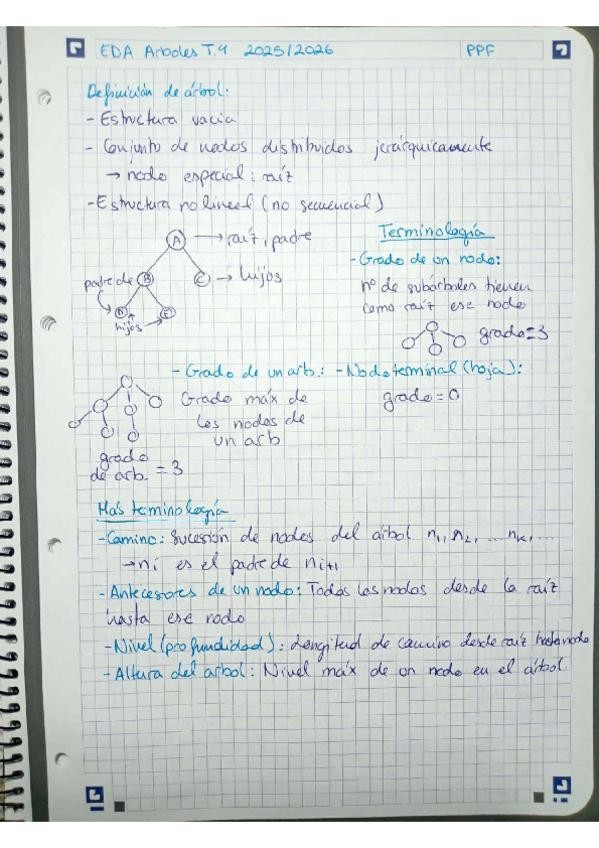 EDA Arboles T.4 2025/2026 PPF
Definición de árbol:
- Estructura vacía
- Conjunto de nodos distribuidos jerárquicamente
→ nodo especial: raíz
- Estructura no lineal (no secuencial)
A → raíz, padre
padre de B
C → hijos
D E
hijos
Terminología
- Grado de un nodo:
nº de subárboles tienen
como raíz ese nodo
grado=3
- Grado de un arb.:
Grado máx de
los nodos de
un arb
grado
de arb. = 3
- Nodo terminal (hoja):
grado=0
Más teminología
- Camino: Sucesión de nodos del árbol n1, n2, ... nk, ...
→ ni es el padre de ni+1
- Antecesores de un nodo: Todos los nodos desde la raíz
hasta ese nodo
- Nivel (profundidad): Longitud de camino desde raíz hasta nodo
- Altura del arbol: Nivel máx de un nodo en el árbol.